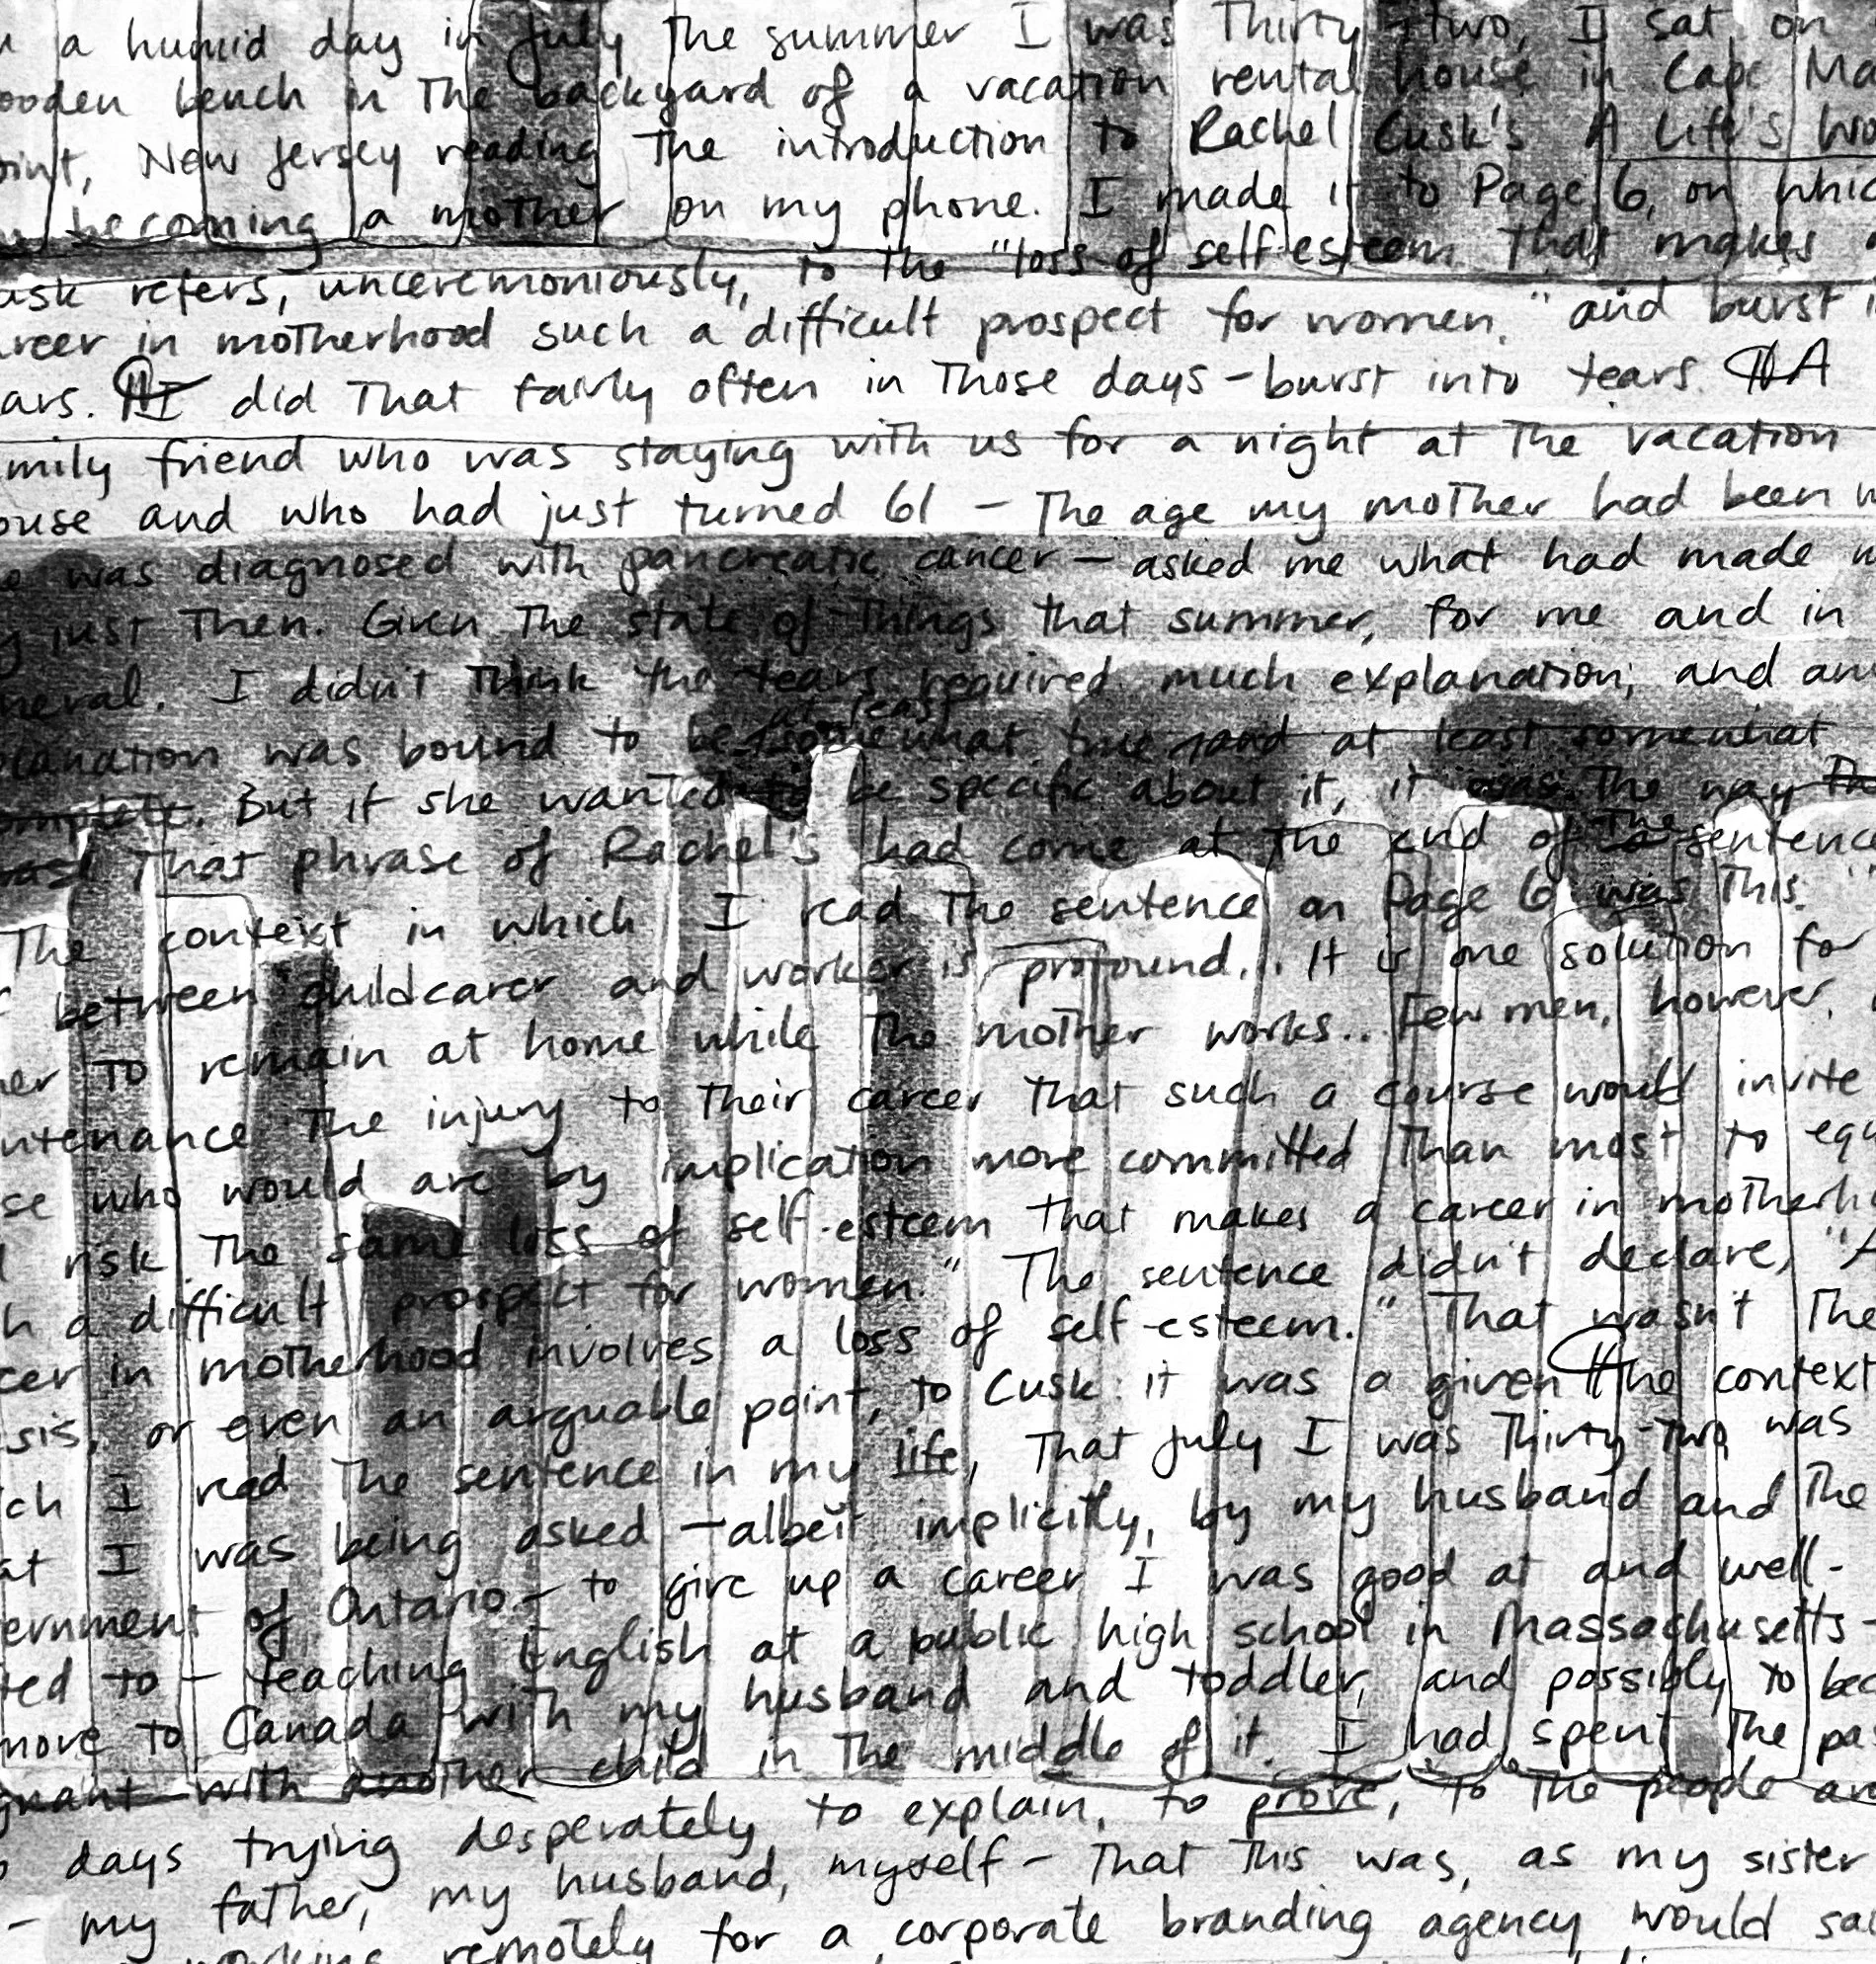 a humid day in July the summer I was Thirty-two, I sat on
ooden bench in The backyard of a vacation rental house in Cape Ma
oint, New Jersey reading The introduction to Rachel Cusk's A Life's Wo
becoming a mother on my phone. I made it to Page 6, on whic
usk refers, unceremoniously, to the "loss of self-esteem that makes
areer in motherhood such a difficult prospect for women," and burst i
ars. ¶I did That fairly often in Those days - burst into tears. ¶A
mily friend who was staying with us for a night at The vacation
ouse and who had just turned 61 - The age my mother had been w
e was diagnosed with pancreatic cancer - asked me what had made m
y just Then. Given The state of Things that summer, for me and in
neral. I didn't Think the tears required much explanation; and an
at least
planation was bound to be somewhat true and at least somewhat
omplete. But if she wanted to be specific about it, it was The way Th
That phrase of Rachel's had come at the end of The sentence
The context in which I read The sentence on Page 6 was This: "
between childcarer and worker is profound... It is one solution for
her To remain at home while The mother works... Few men, however,
ntenance The injury to Their career That such a course would invite
se who would are by implication more committed Than most to equ
risk The same loss of self-esteem That makes a career in motherh
h a difficult prospect for women." The sentence didn't declare, "A
eer in motherhood involves a loss of self-esteem." That wasn't The
sis, or even an arguable point, to Cusk: it was a given ¶The context
ch I read The sentence in my life, That July I was Thirty-Two, was
at I was being asked - albeit implicitly, by my husband and The
ernment of Ontario - to give up a career I was good at and well-
ted to - teaching English at a public high school in Massachusetts -
move to Canada with my husband and toddler, and possibly to bec
gnant with another child in The middle of it. I had spent The pa
days trying desperately to explain, to prove, to The people an
- my father, my husband, myself - That This was, as my sister
working remotely for a corporate branding agency would sa